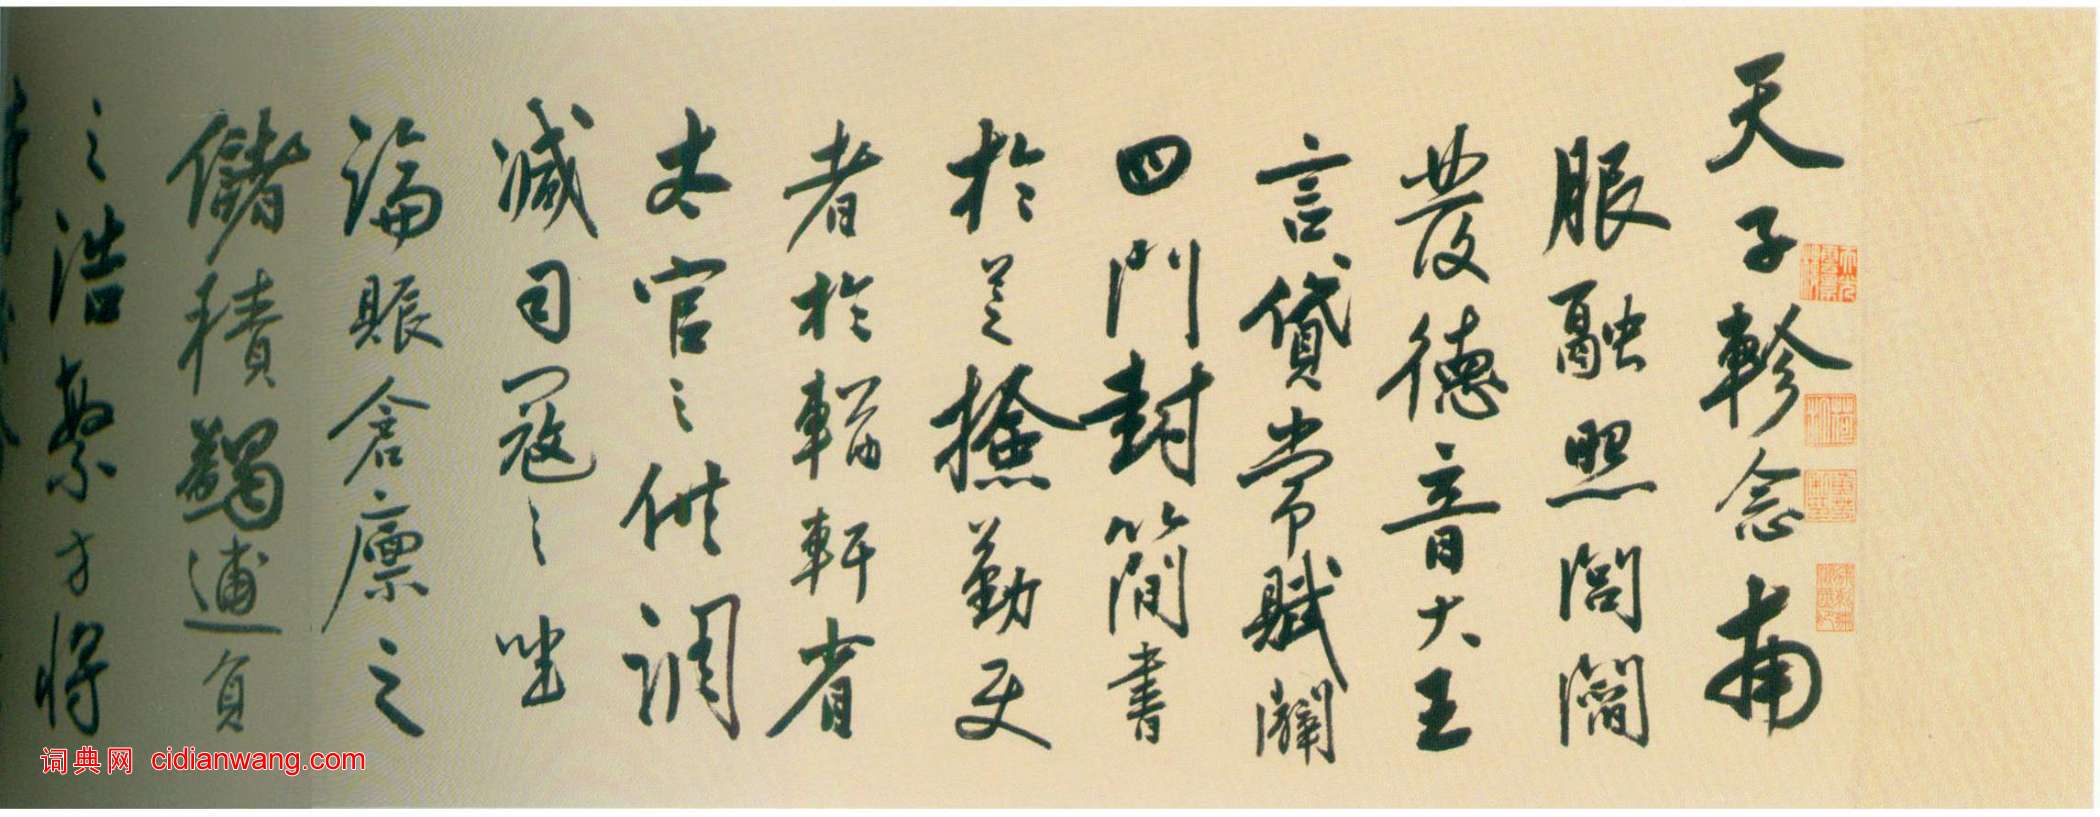 天子軫念南
服融照閭閻
發德音大王
言貸常賦闢
四門封簡書
於芝撿勤吏
者於輶軒省
太官之供調
減司寇之
論賬倉廩之
儲積蠲逋負
之浩繁方將
词典网 cidianwang.com